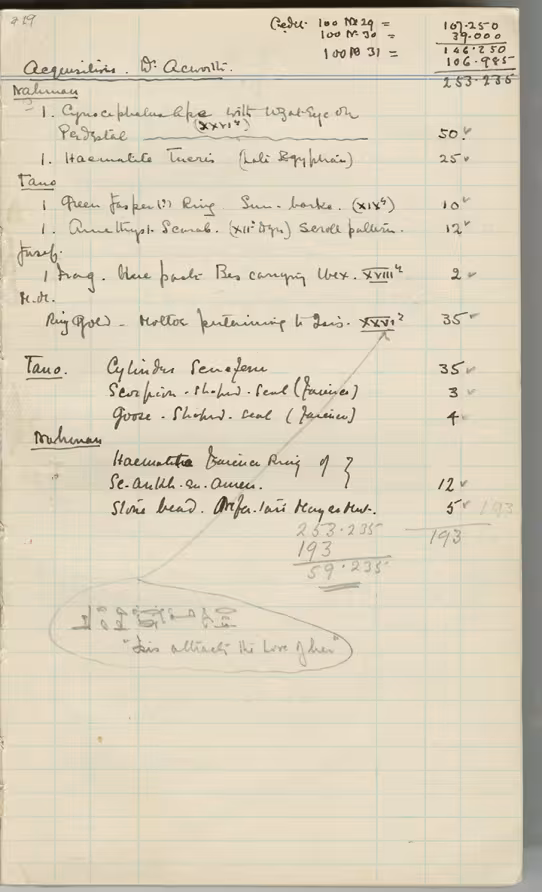 Credit. 100 No 29 = 107.250
100 No 30 = 39.000
146.250
100 No 31 = 106.985
253.235
Acquisitions. Dr. Acworth.
Nahman
1. Cynocephalus Ape with Uzat Eye on
(XXVI)
Pedestal 50.
1. Haematite Tueris (Late Egyptian) 25
Tano
1 Green Jasper Ring. Sun-barke. (XIX)
10
1. Amethyst Scarab. (XII Dyn) Scroll pattern. 12
Jusef.
1 Frag. blue paste Bes carrying Ibex. XVIII 2
Ring Gold - Mottoe pertaining to Isis. XXVI? 35
Tano. Cylinder Seneferu 35
Scorpion-shaped-Seal (Faience) 3
Goose-Shaped-Seal (Faience) 4
Nahman
Haematite Faience Ring of }
Se-ankh-en-Amen. 12
Stone bead. 5 193
253.235 193
193
59.235
"Isis attracts the Love of her"